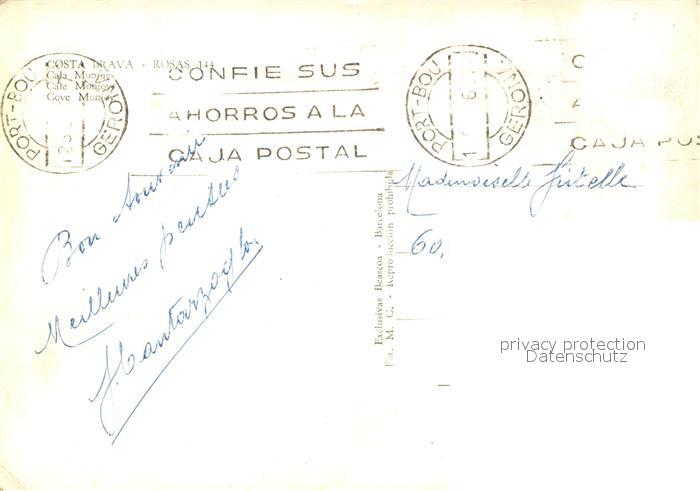 COSTA BRAVA - ROSAS 144
Cala Monjoy
Cale Monjoy
Cove Monjoy
PORT-BOU
GERONA
CONFIE SUS
AHORROS A LA
CAJA POSTAL
PORT-BOU
GERONA
C
A
CAJA POS
Bon souvenir
Meilleures pensées
Mademoiselle
60,
Exclusivas Beascoa - Barcelona
Fot. M. C. - Reproduccion prohibida
privacy protection
Datenschutz